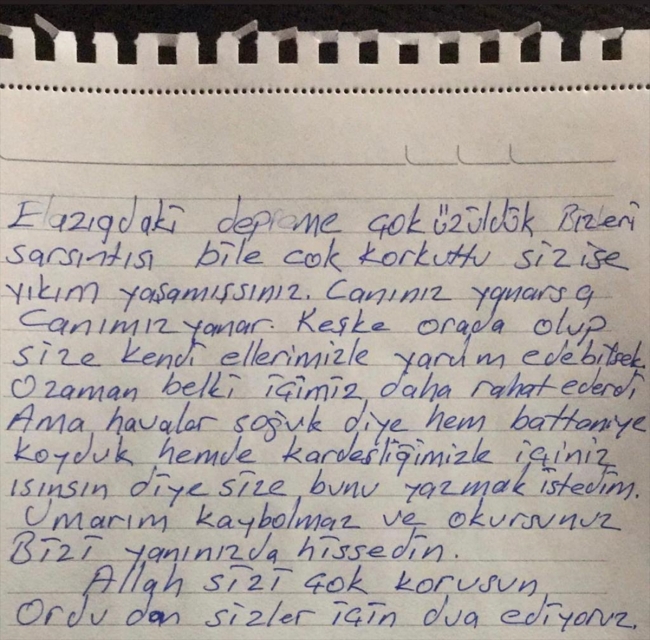 Elazıgdaki depreme çok üzüldük Bizleri
sarsıntısı bile cok korkuttu sizise
yıkım yaşamışsınız. Canınız yanarsa
Canımız yanar. Keşke orada olup
size kendi ellerimizle yardım edebilsek.
Ozaman belki içimiz daha rahat ederdi
Ama havalar soğuk diye hem battaniye
koyduk hemde kardeşliğimizle içiniz
ısınsın diye size bunu yazmak istedim.
Umarım kaybolmaz ve okursunuz
Bizi yanınızda hissedin.
Allah sizi çok korusun
Ordu dan sizler için dua ediyoruz.